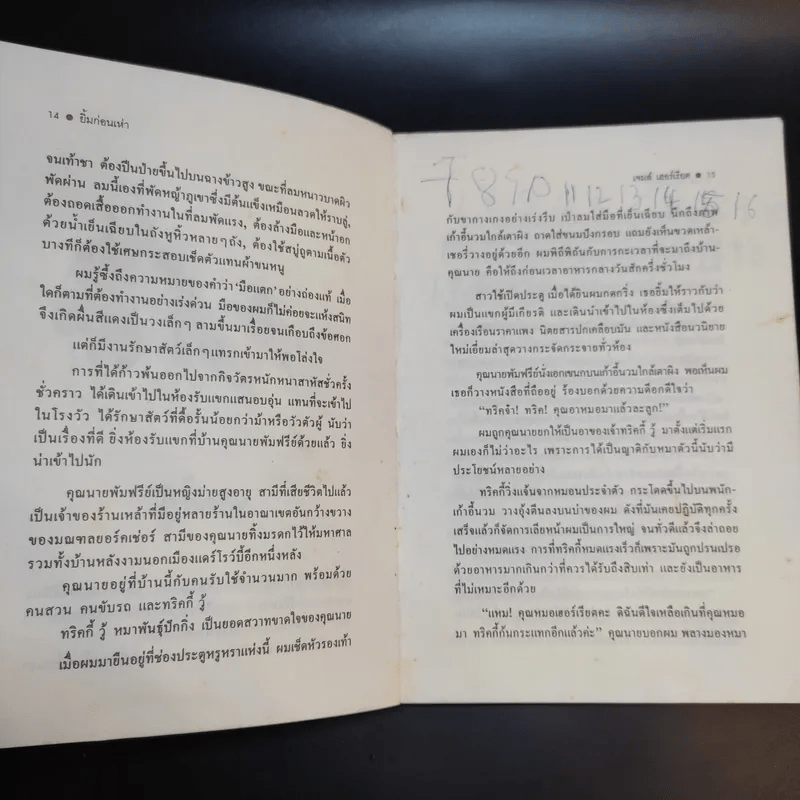 14 ● ยิ้มก่อนเห่า
จนเท้าชา ต้องปีนป่ายขึ้นไปบนฉางข้าวสูง ขณะที่ลมหนาวบาดผิว
พัดผ่าน ลมนี้เองที่พัดหญ้าภูเขาซึ่งมีต้นแข็งเหมือนลวดให้ราบลู่,
ต้องถอดเสื้อออกทำงานในที่ลมพัดแรง, ต้องล้างมือและหน้าอก
ด้วยน้ำเย็นเฉียบในถังหูหิ้วหลายๆถัง, ต้องใช้สบู่ถูตามเนื้อตัว
บางทีก็ต้องใช้เศษกระสอบเช็ดตัวแทนผ้าขนหนู
ผมรู้ซึ้งถึงความหมายของคำว่า‘มือแตก’อย่างถ่องแท้ เมื่อ
ใดก็ตามที่ต้องทำงานอย่างเร่งด่วน มือของผมก็ไม่ค่อยจะแห้งสนิท
จึงเกิดผื่นสีแดงเป็นวงเล็กๆ ลามขึ้นมาเรื่อยจนเกือบถึงข้อศอก
แต่ก็มีงานรักษาสัตว์เล็กๆแทรกเข้ามาให้พอโล่งใจ
การที่ได้ก้าวพ้นออกไปจากกิจวัตรหนักหนาสาหัสชั่วครั้ง
ชั่วคราว ได้เดินเข้าไปในห้องรับแขกแสนอบอุ่น แทนที่จะเข้าไป
ในโรงวัว ได้รักษาสัตว์ที่ดื้อรั้นน้อยกว่าม้าหรือวัวตัวผู้ นับว่า
เป็นเรื่องที่ดี ยิ่งห้องรับแขกที่บ้านคุณนายพัมฟรีย์ด้วยแล้ว ยิ่ง
น่าเข้าไปนัก
คุณนายพัมฟรีย์เป็นหญิงม่ายสูงอายุ สามีที่เสียชีวิตไปแล้ว
เป็นเจ้าของร้านเหล้าที่มีอยู่หลายร้านในอาณาเขตอันกว้างขวาง
ของมณฑลยอร์คเช่อร์ สามีของคุณนายทิ้งมรดกไว้ให้มหาศาล
รวมทั้งบ้านหลังงามนอกเมืองแดร์โรว์บี้อีกหนึ่งหลัง
คุณนายอยู่ที่บ้านนี้กับคนรับใช้จำนวนมาก พร้อมด้วย
คนสวน คนขับรถ และทริคกี้ วู้
ทริคกี้ วู้ หมาพันธุ์ปักกิ่ง เป็นยอดสวาทขาดใจของคุณนาย
เมื่อผมมายืนอยู่ที่ช่องประตูหรูหราแห่งนี้ ผมเช็ดหัวรองเท้า
เจมส์ เฮอร์เรียต ● 15
11 12 13 14 15 16
กับขากางเกงอย่างเร่งรีบ เป่าลมใส่มือที่เย็นเฉียบ นึกถึงภาพ
เก้าอี้นวมใกล้เตาผิง ถาดใส่ขนมปังกรอบ แถมยังเห็นขวดเหล้า-
เชอรี่วางอยู่ด้วยอีก ผมพิถีพิถันกับการกะเวลาที่จะมาถึงบ้าน-
คุณนาย คือให้ถึงก่อนเวลาอาหารกลางวันสักครึ่งชั่วโมง
สาวใช้เปิดประตู เมื่อได้ยินผมกดกริ่ง เธอยิ้มให้ราวกับว่า
ผมเป็นแขกผู้มีเกียรติ และเดินนำเข้าไปในห้องซึ่งเต็มไปด้วย
เครื่องเรือนราคาแพง นิตยสารปกเคลือบมัน และหนังสือนวนิยาย
ใหม่เอี่ยมล่าสุดวางกระจัดกระจายทั่วห้อง
คุณนายพัมฟรีย์นั่งเอกเขนกบนเก้าอี้นวมใกล้เตาผิง พอเห็นผม
เธอก็วางหนังสือที่ถืออยู่ ร้องบอกด้วยความดีอกดีใจว่า
“ทริคจ๋า! ทริค! คุณอาหมอมาแล้วละลูก!”
ผมถูกคุณนายยกให้เป็นอาของเจ้าทริคกี้ วู้ มาตั้งแต่เริ่มแรก
ผมเองก็ไม่ว่าอะไร เพราะการได้เป็นญาติกับหมาตัวนี้นับว่ามี
ประโยชน์หลายอย่าง
ทริคกี้วิ่งแจ้นจากหมอนประจำตัว กระโดดขึ้นไปบนพนัก-
เก้าอี้นวม วางอุ้งตีนลงบนบ่าของผม ดังที่มันเคยปฏิบัติทุกครั้ง
เสร็จแล้วก็จัดการเลียหน้าผมเป็นการใหญ่ จนทั่วดีแล้วจึงล่าถอย
ไปอย่างหมดแรง การที่ทริคกี้หมดแรงเร็วก็เพราะมันถูกปรนเปรอ
ด้วยอาหารมากเกินกว่าที่ควรได้รับถึงสิบเท่า และยังเป็นอาหาร
ที่ไม่เหมาะอีกด้วย
“แหม! คุณหมอเฮอร์เรียตคะ ดิฉันดีใจเหลือเกินที่คุณหมอ
มา ทริคกี้ก้นกระแทกอีกแล้วค่ะ” คุณนายบอกผม พลางมองหมา